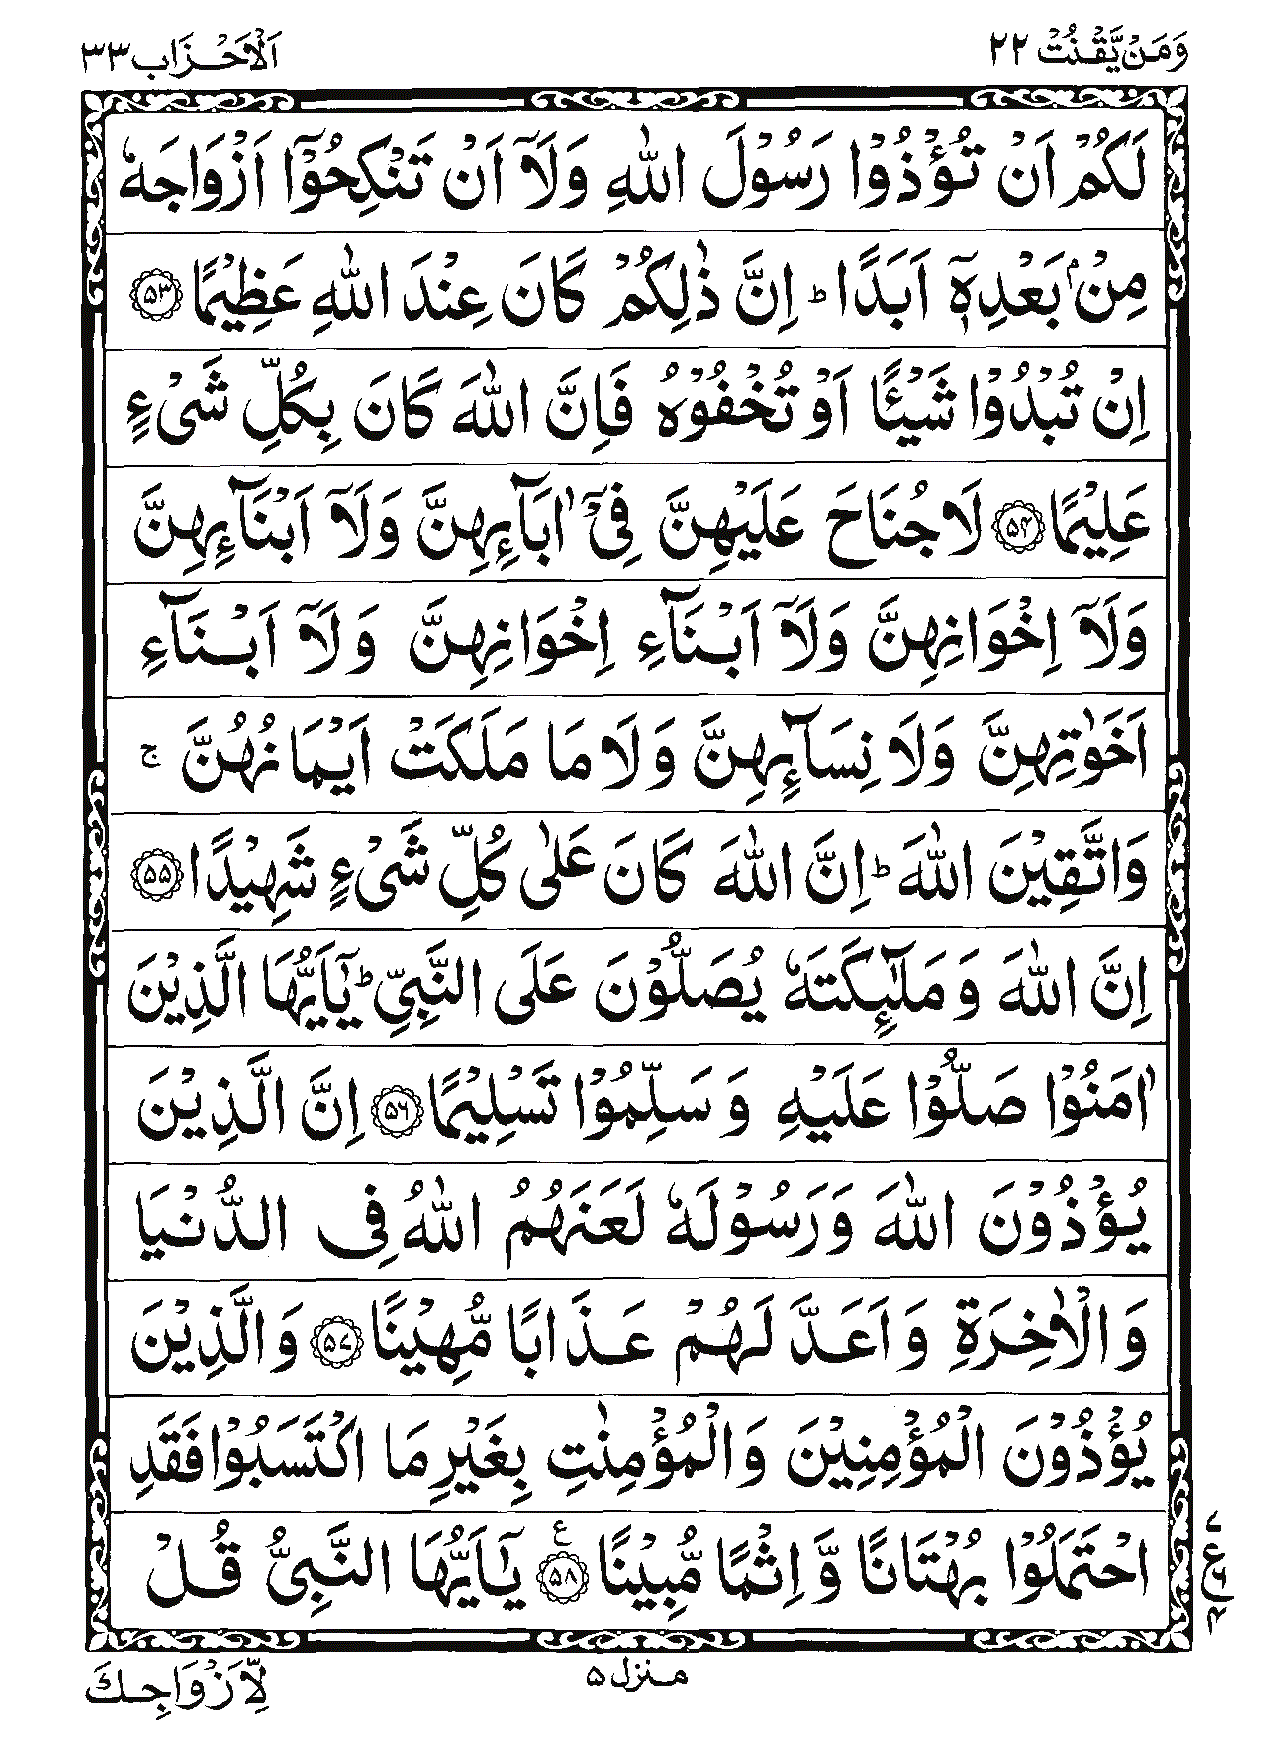 وَمَنْ يَّقْنُتْ ٢٢
اَلْاَحْزَاب ٣٣
لَكُمْ اَنْ تُؤْذُوْا رَسُوْلَ اللّٰهِ وَلَاۤ اَنْ تَنْكِحُوْۤا اَزْوَاجَهٗ
مِنْۢ بَعْدِهٖۤ اَبَدًا ؕ اِنَّ ذٰلِكُمْ كَانَ عِنْدَ اللّٰهِ عَظِيْمًا ۝۵۳
اِنْ تُبْدُوْا شَيْـًٔا اَوْ تُخْفُوْهُ فَاِنَّ اللّٰهَ كَانَ بِكُلِّ شَیْءٍ
عَلِيْمًا ۝۵۴ لَا جُنَاحَ عَلَيْهِنَّ فِیْۤ اٰبَآئِهِنَّ وَلَاۤ اَبْنَآئِهِنَّ
وَلَاۤ اِخْوَانِهِنَّ وَلَاۤ اَبْنَآءِ اِخْوَانِهِنَّ وَلَاۤ اَبْنَآءِ
اَخَوٰتِهِنَّ وَلَا نِسَآئِهِنَّ وَلَا مَا مَلَكَتْ اَيْمَانُهُنَّ ۚ
وَاتَّقِيْنَ اللّٰهَ ؕ اِنَّ اللّٰهَ كَانَ عَلٰی كُلِّ شَیْءٍ شَهِيْدًا ۝۵۵
اِنَّ اللّٰهَ وَمَلٰٓئِكَتَهٗ يُصَلُّوْنَ عَلَی النَّبِیِّ ؕ يٰۤاَيُّهَا الَّذِيْنَ
اٰمَنُوْا صَلُّوْا عَلَيْهِ وَسَلِّمُوْا تَسْلِيْمًا ۝۵۶ اِنَّ الَّذِيْنَ
يُؤْذُوْنَ اللّٰهَ وَرَسُوْلَهٗ لَعَنَهُمُ اللّٰهُ فِی الدُّنْيَا
وَالْاٰخِرَةِ وَاَعَدَّ لَهُمْ عَذَابًا مُّهِيْنًا ۝۵۷ وَالَّذِيْنَ
يُؤْذُوْنَ الْمُؤْمِنِيْنَ وَالْمُؤْمِنٰتِ بِغَيْرِ مَا اكْتَسَبُوْا فَقَدِ
احْتَمَلُوْا بُهْتَانًا وَّاِثْمًا مُّبِيْنًا ۝۵۸ ع يٰۤاَيُّهَا النَّبِیُّ قُلْ
۷
ع ۶
۴
منزل ۵
لِّاَزْوَاجِكَ